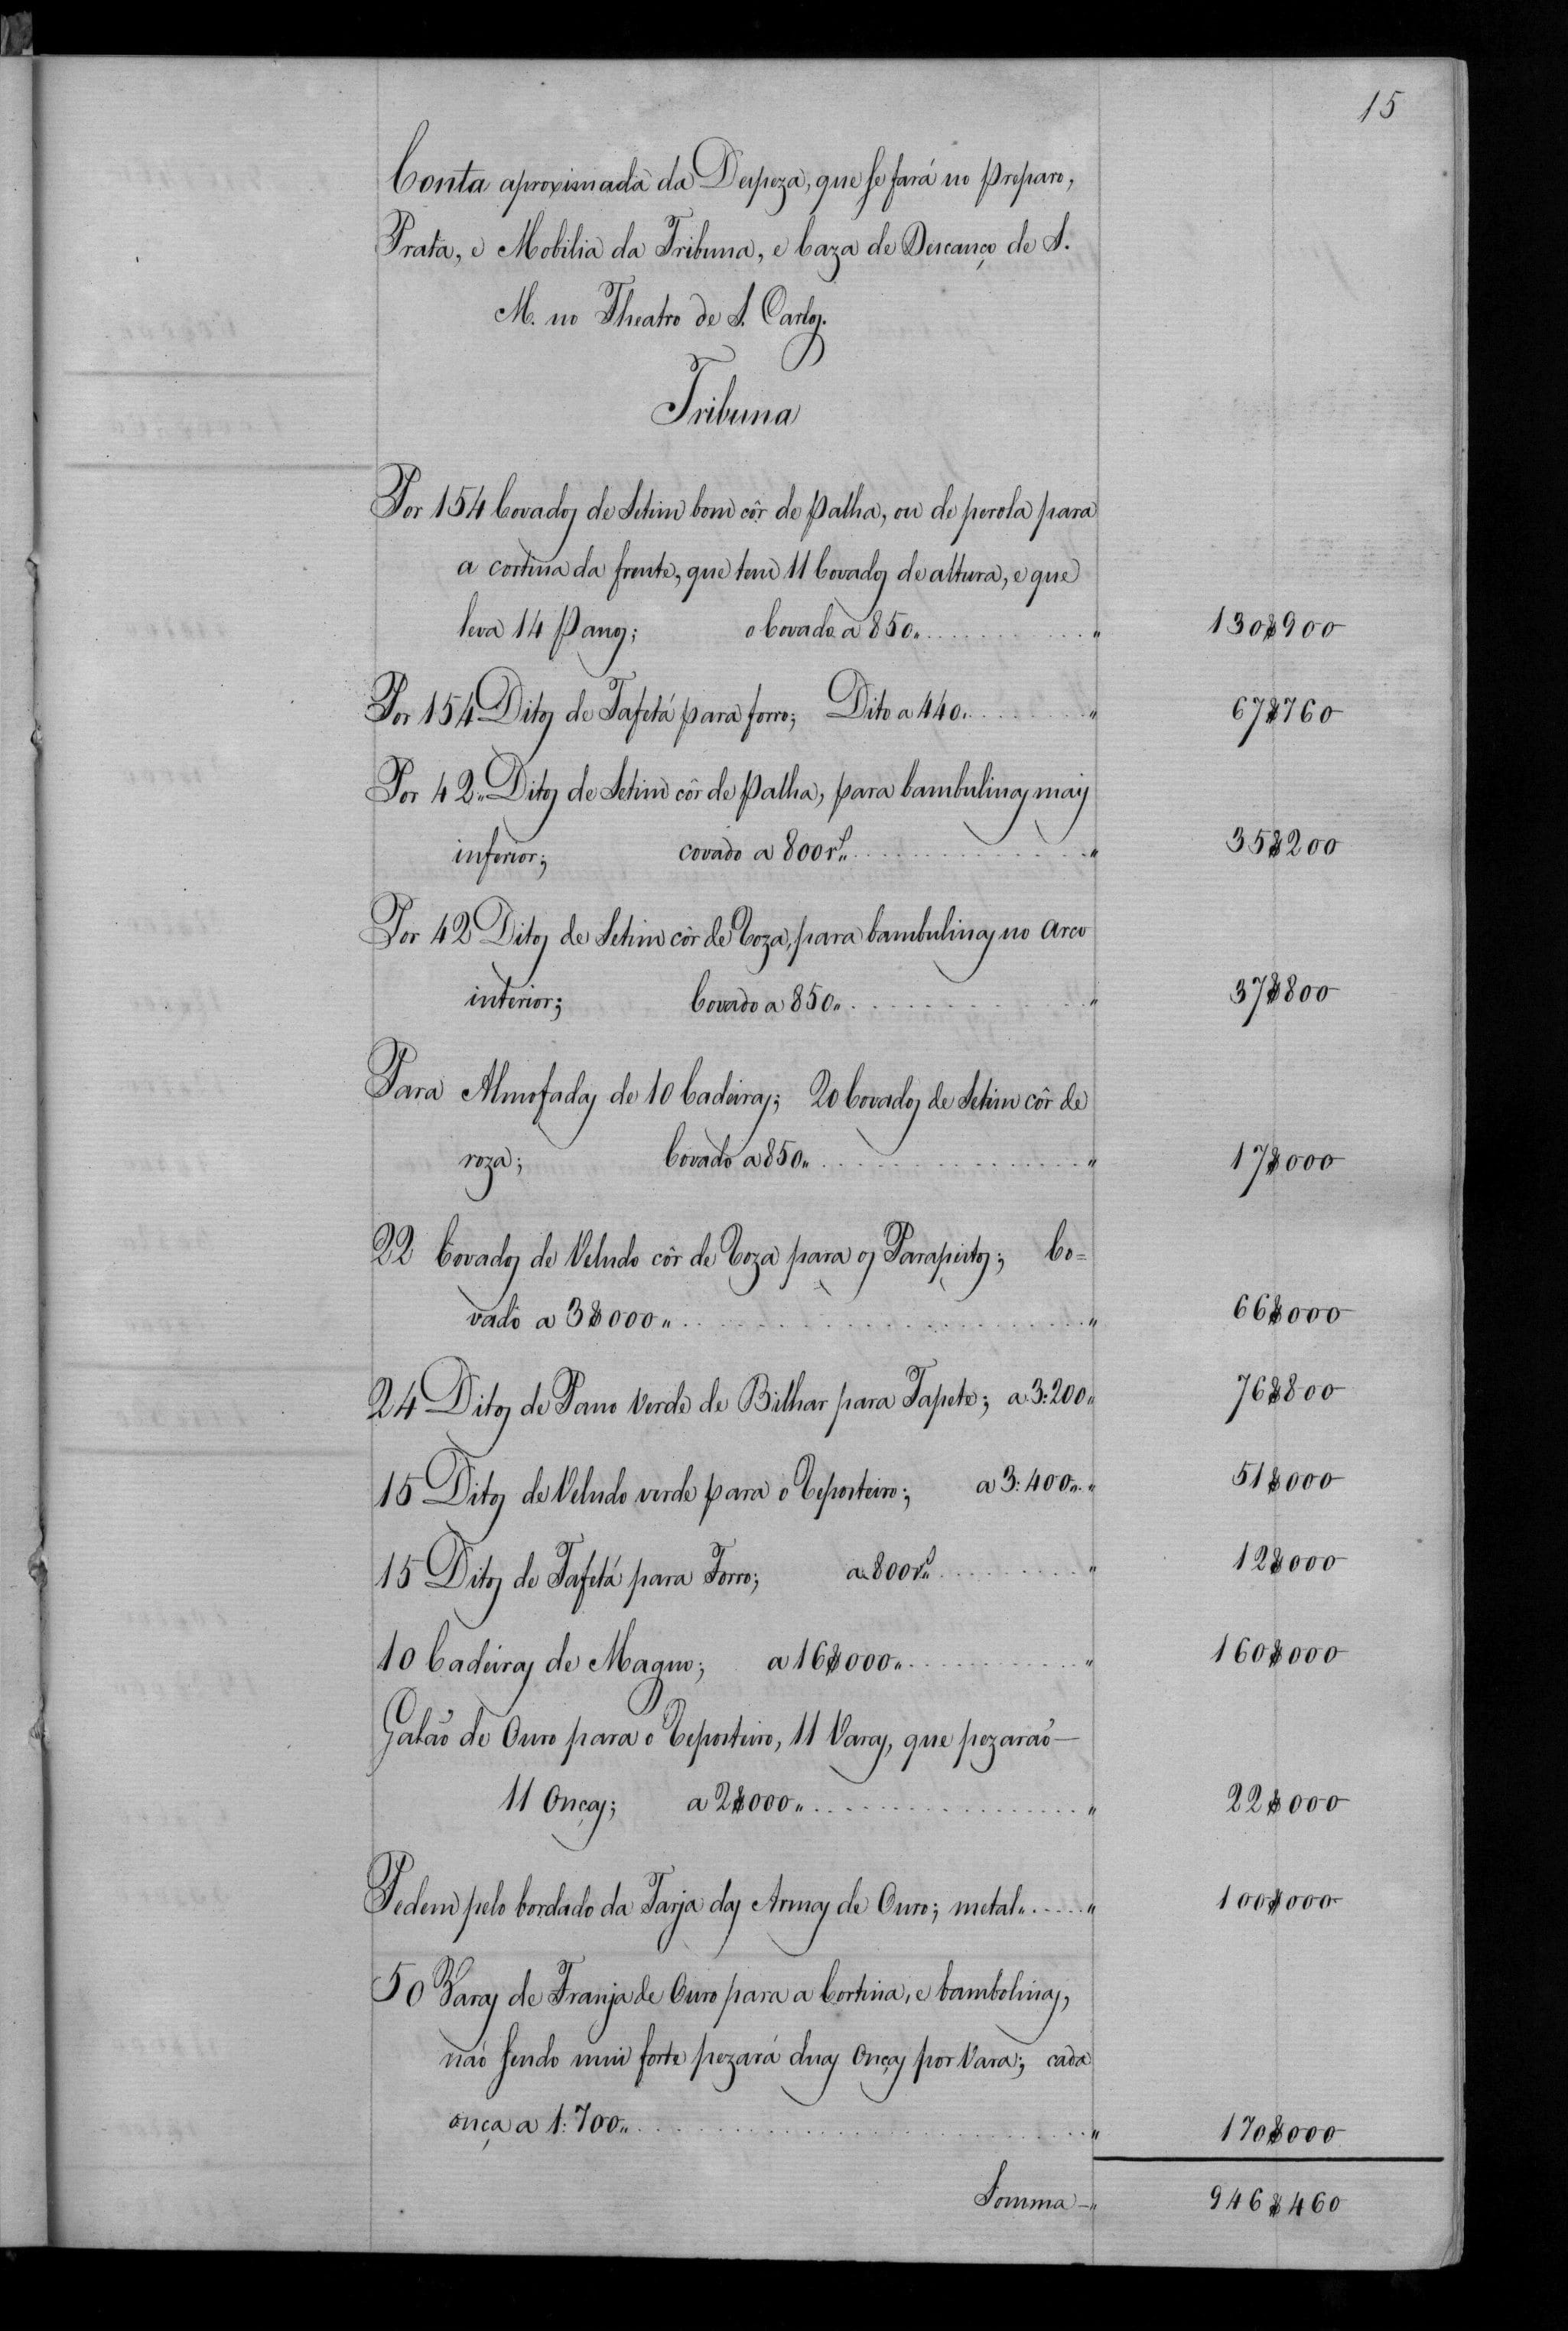 15
Conta aproximada da Despeza, que se fará no preparo,
Prata, e Mobilia da Tribuna, e Caza de Descanço de S.
M. no Theatro de S. Carlos.
Tribuna
Por 154 Covados de Setim bom côr de palha, ou de perola para
a cortina da frente, que tem 11 Covados de altura, e que
leva 14 panos; o Covado a 850 " 130$900
Por 154 Ditos de Tafetá para forro; Dito a 440 " 67$760
Por 42 Ditos de Setim côr de palha, para bambulinas mais
inferior; covado a 800 rs " 35$200
Por 42 Ditos de Setim côr de Roza, para bambulinas no arco
interior; Covado a 850 " 37$800
Para Almofadas de 10 Cadeiras; 20 Covados de Setim côr de
roza; Covado a 850 " 17$000
22 Covados de Veludo côr de Roza para os Parapeitos; Co=
vado a 3$000 " 66$000
24 Ditos de Pano Verde de Bilhar para Tapete; a 3:200 " 76$800
15 Ditos de Veludo verde para o Reposteiro; a 3:400 " 51$000
15 Ditos de Tafetá para Forro; a 800 rs " 12$000
10 Cadeiras de Magno; a 16$000 " 160$000
Galão de Ouro para o Reposteiro, 11 Varas, que pezarão
11 Onças; a 2$000 " 22$000
Pedem pelo bordado da Tarja das Armas de Ouro; metal " 100$000
50 Varas de Franja de Ouro para a Cortina, e bambolinas,
não sendo mui forte pezará duas Onças por Vara; cada
onça a 1:700 " 170$000
Somma " 946$460